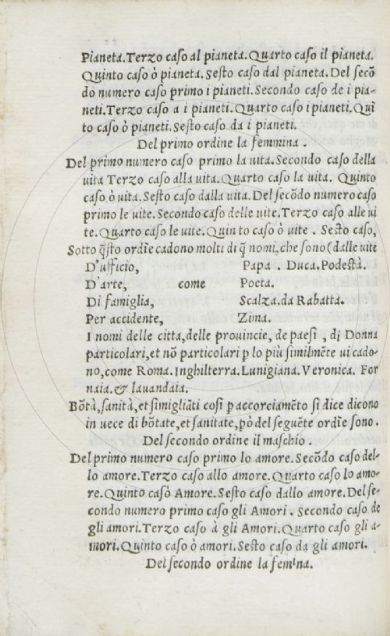 Pianeta.Terzo caso al pianeta.Quarto caso il pianeta.
Quinto caso ò pianeta. Sesto caso dal pianeta. Del secõ
do numero caso primo i pianeti. Secondo caso de i pia-
neti.Terzo caso a i pianeti. Quarto caso i pianeti. Quĩ
to caso ò pianeti. Sesto caso da i pianeti.
Del primo ordine la femmina .
Del primo numero caso primo la uita. Secondo caso della
uita Terzo caso alla uita. Quarto caso la uita. Quinto
caso ò uita. Sesto caso dalla uita. Del secõdo numero caso
primo le uite. Secondo caso delle uite. Terzo caso alle ui
te. Quarto caso le uite. Quinto caso ò uite . Sesto caso,
Sotto q̃sto ordĩe cadono molti di q̃ nomi, che sono (dalle uite
D'ufficio, Papa . Duca. Podestà.
D'arte, come Poeta.
Di famiglia, Scalza. da Rabatta.
Per accidente, Zima.
I nomi delle citta, delle prouincie, de paesi , di Donna
particolari, et nõ particolari p lo più similmẽte ui cado-
no, come Roma. Inghilterra. Lunigiana. Veronica. For
naia. & lauandaia.
Bõtà, sanità, et simigliãti cosi p accorciamẽto si dice dicono
in uece di bõtate, et sanitate, pò del seguẽte ordĩe sono .
Del secondo ordine il maschio .
Del primo numero caso primo lo amore. Secõdo caso del-
lo amore. Terzo caso allo amore. Quarto caso lo amo-
re. Quinto casò Amore. Sesto caso dallo amore. Del se-
condo numero primo caso gli Amori . Secondo caso de
gli amori. Terzo caso à gli Amori. Quarto caso gli a-
mori. Quinto caso ò amori. Sesto caso da gli amori.
Del secondo ordine la femina.